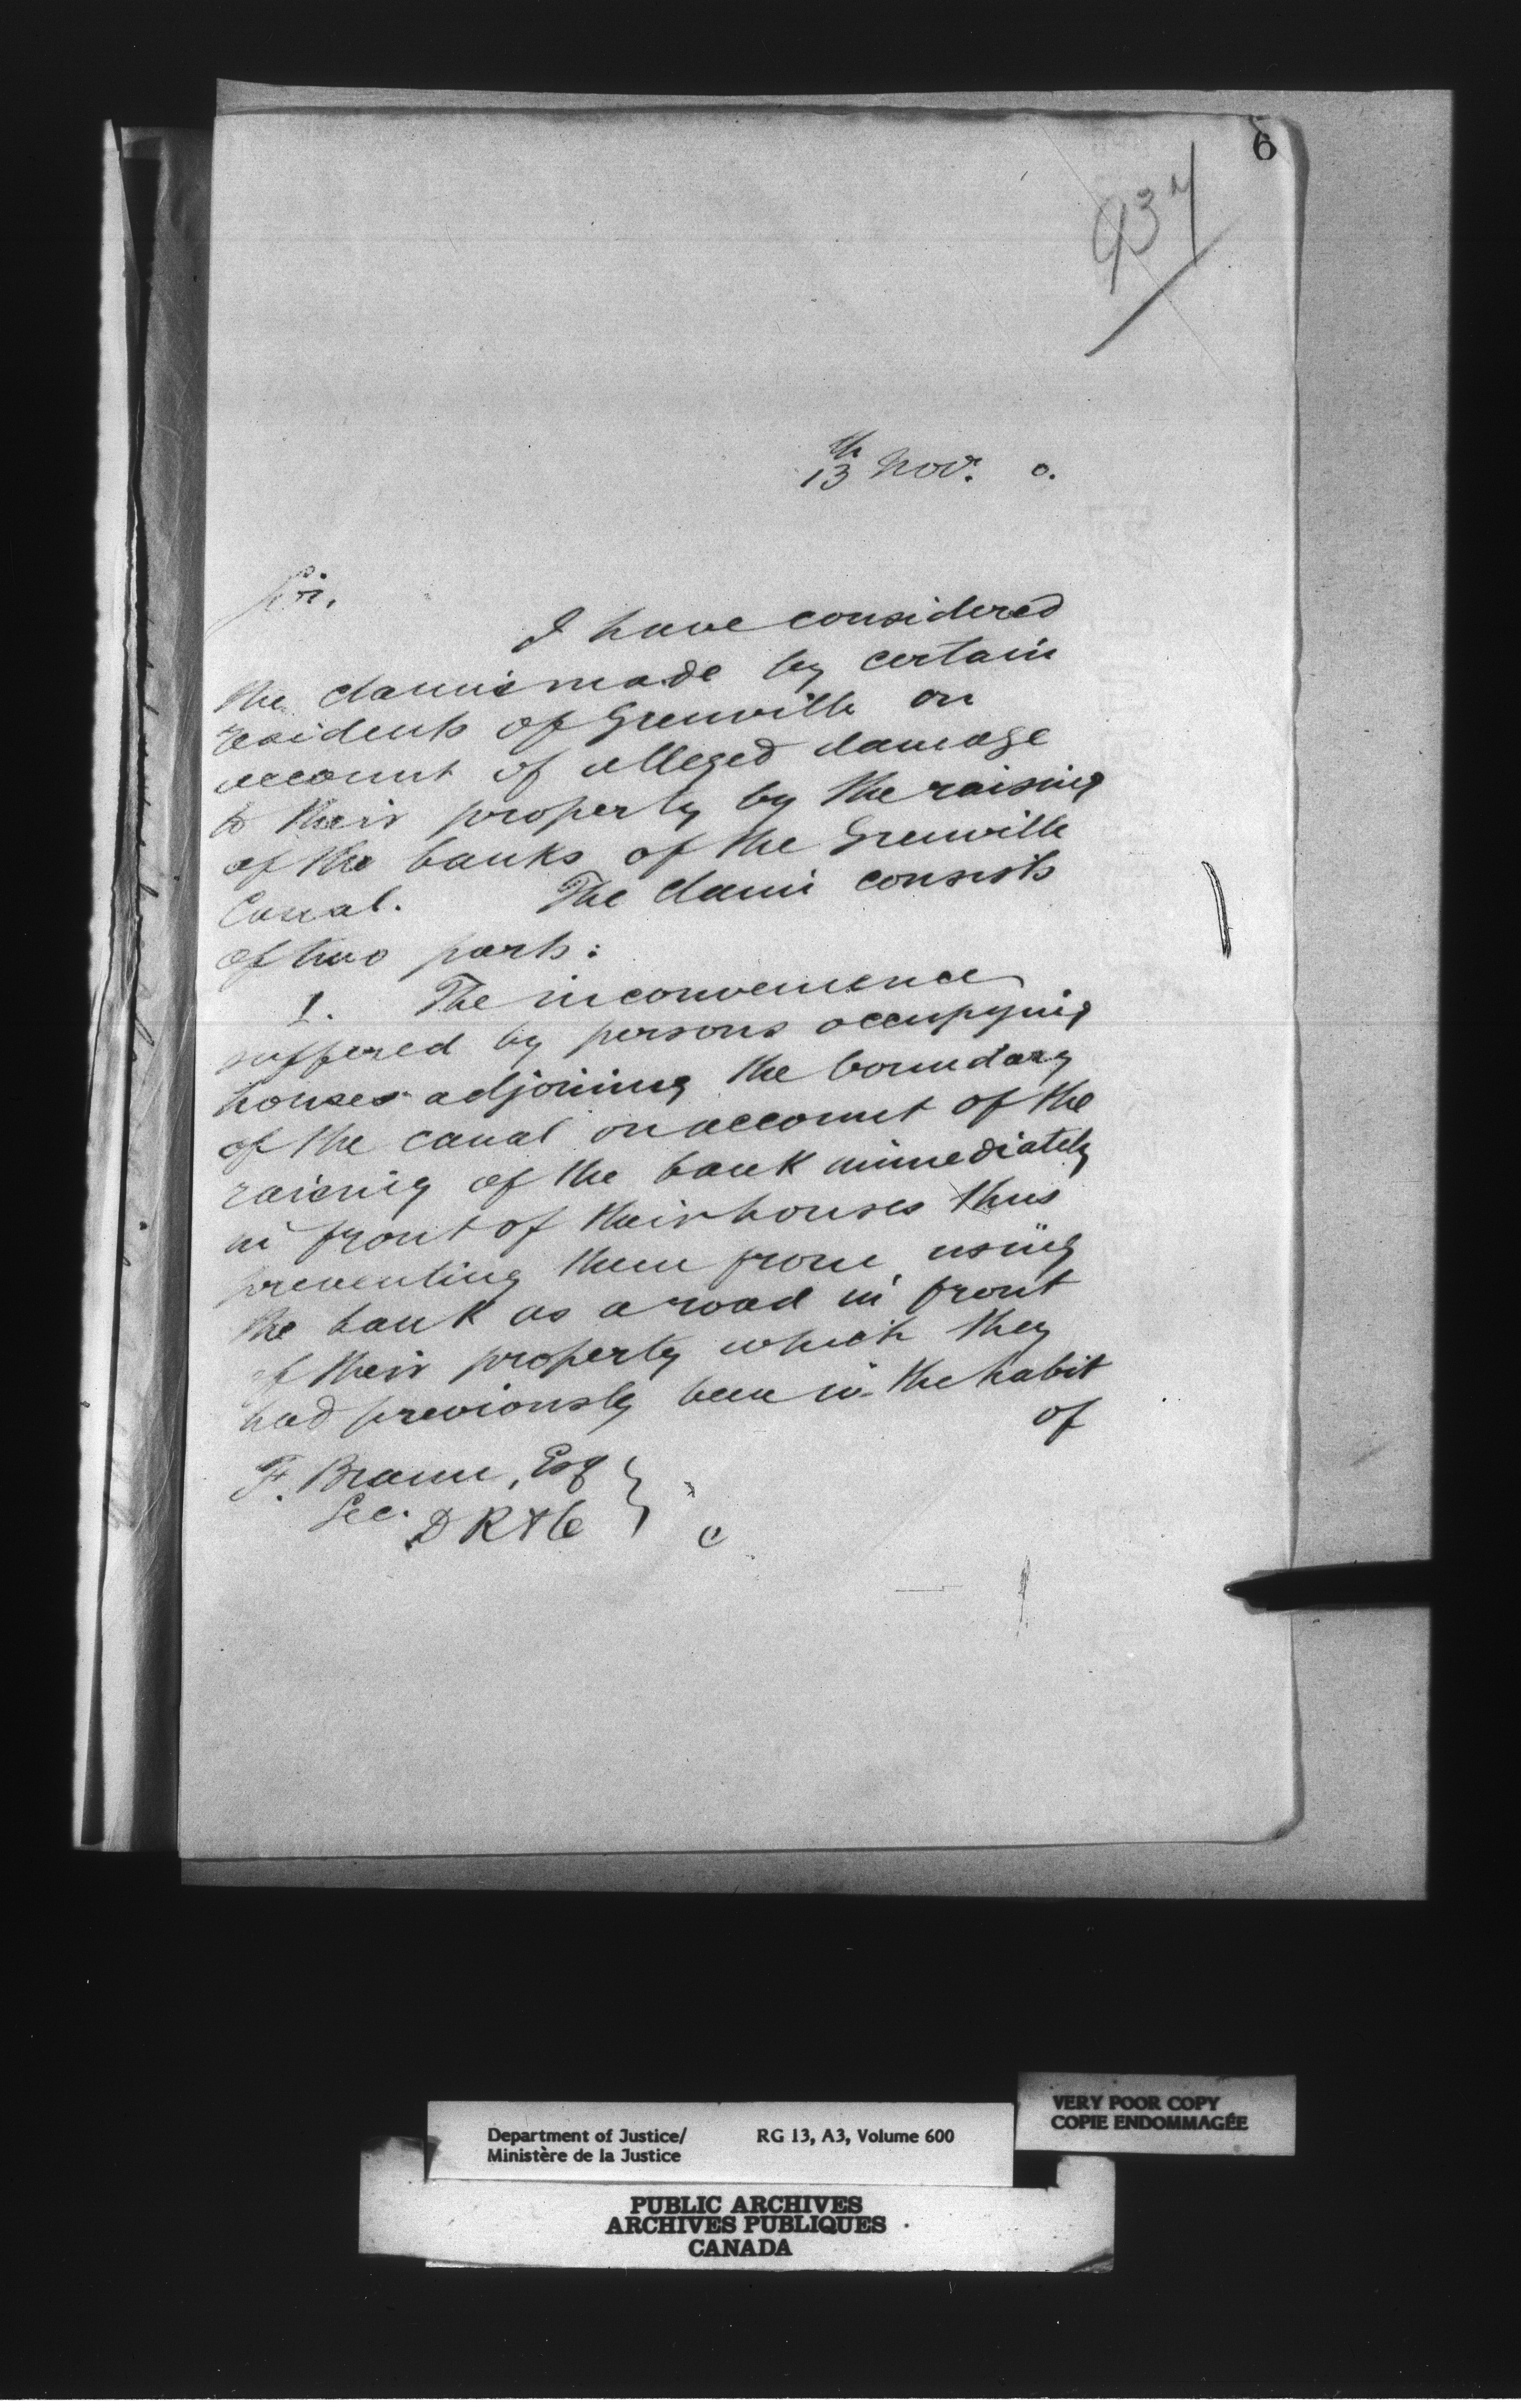 6
937
13th Nov. 0.
Sir,
I have considered
the claims made by certain
residents of Grenville on
account of alleged damage
to their property by the raising
of the banks of the Grenville
Canal. The claim consists
of two parts:
1. The inconvenience
suffered by persons occupying
houses adjoining the boundary
of the canal on account of the
raising of the bank immediately
in front of their houses thus
preventing them from using
the bank as a road in front
of their property which they
had previously been in the habit
of
F. Braun, Esq
Sec. D R & C
Department of Justice/ RG 13, A3, Volume 600
Ministère de la Justice
VERY POOR COPY
COPIE ENDOMMAGÉE
PUBLIC ARCHIVES
ARCHIVES PUBLIQUES
CANADA